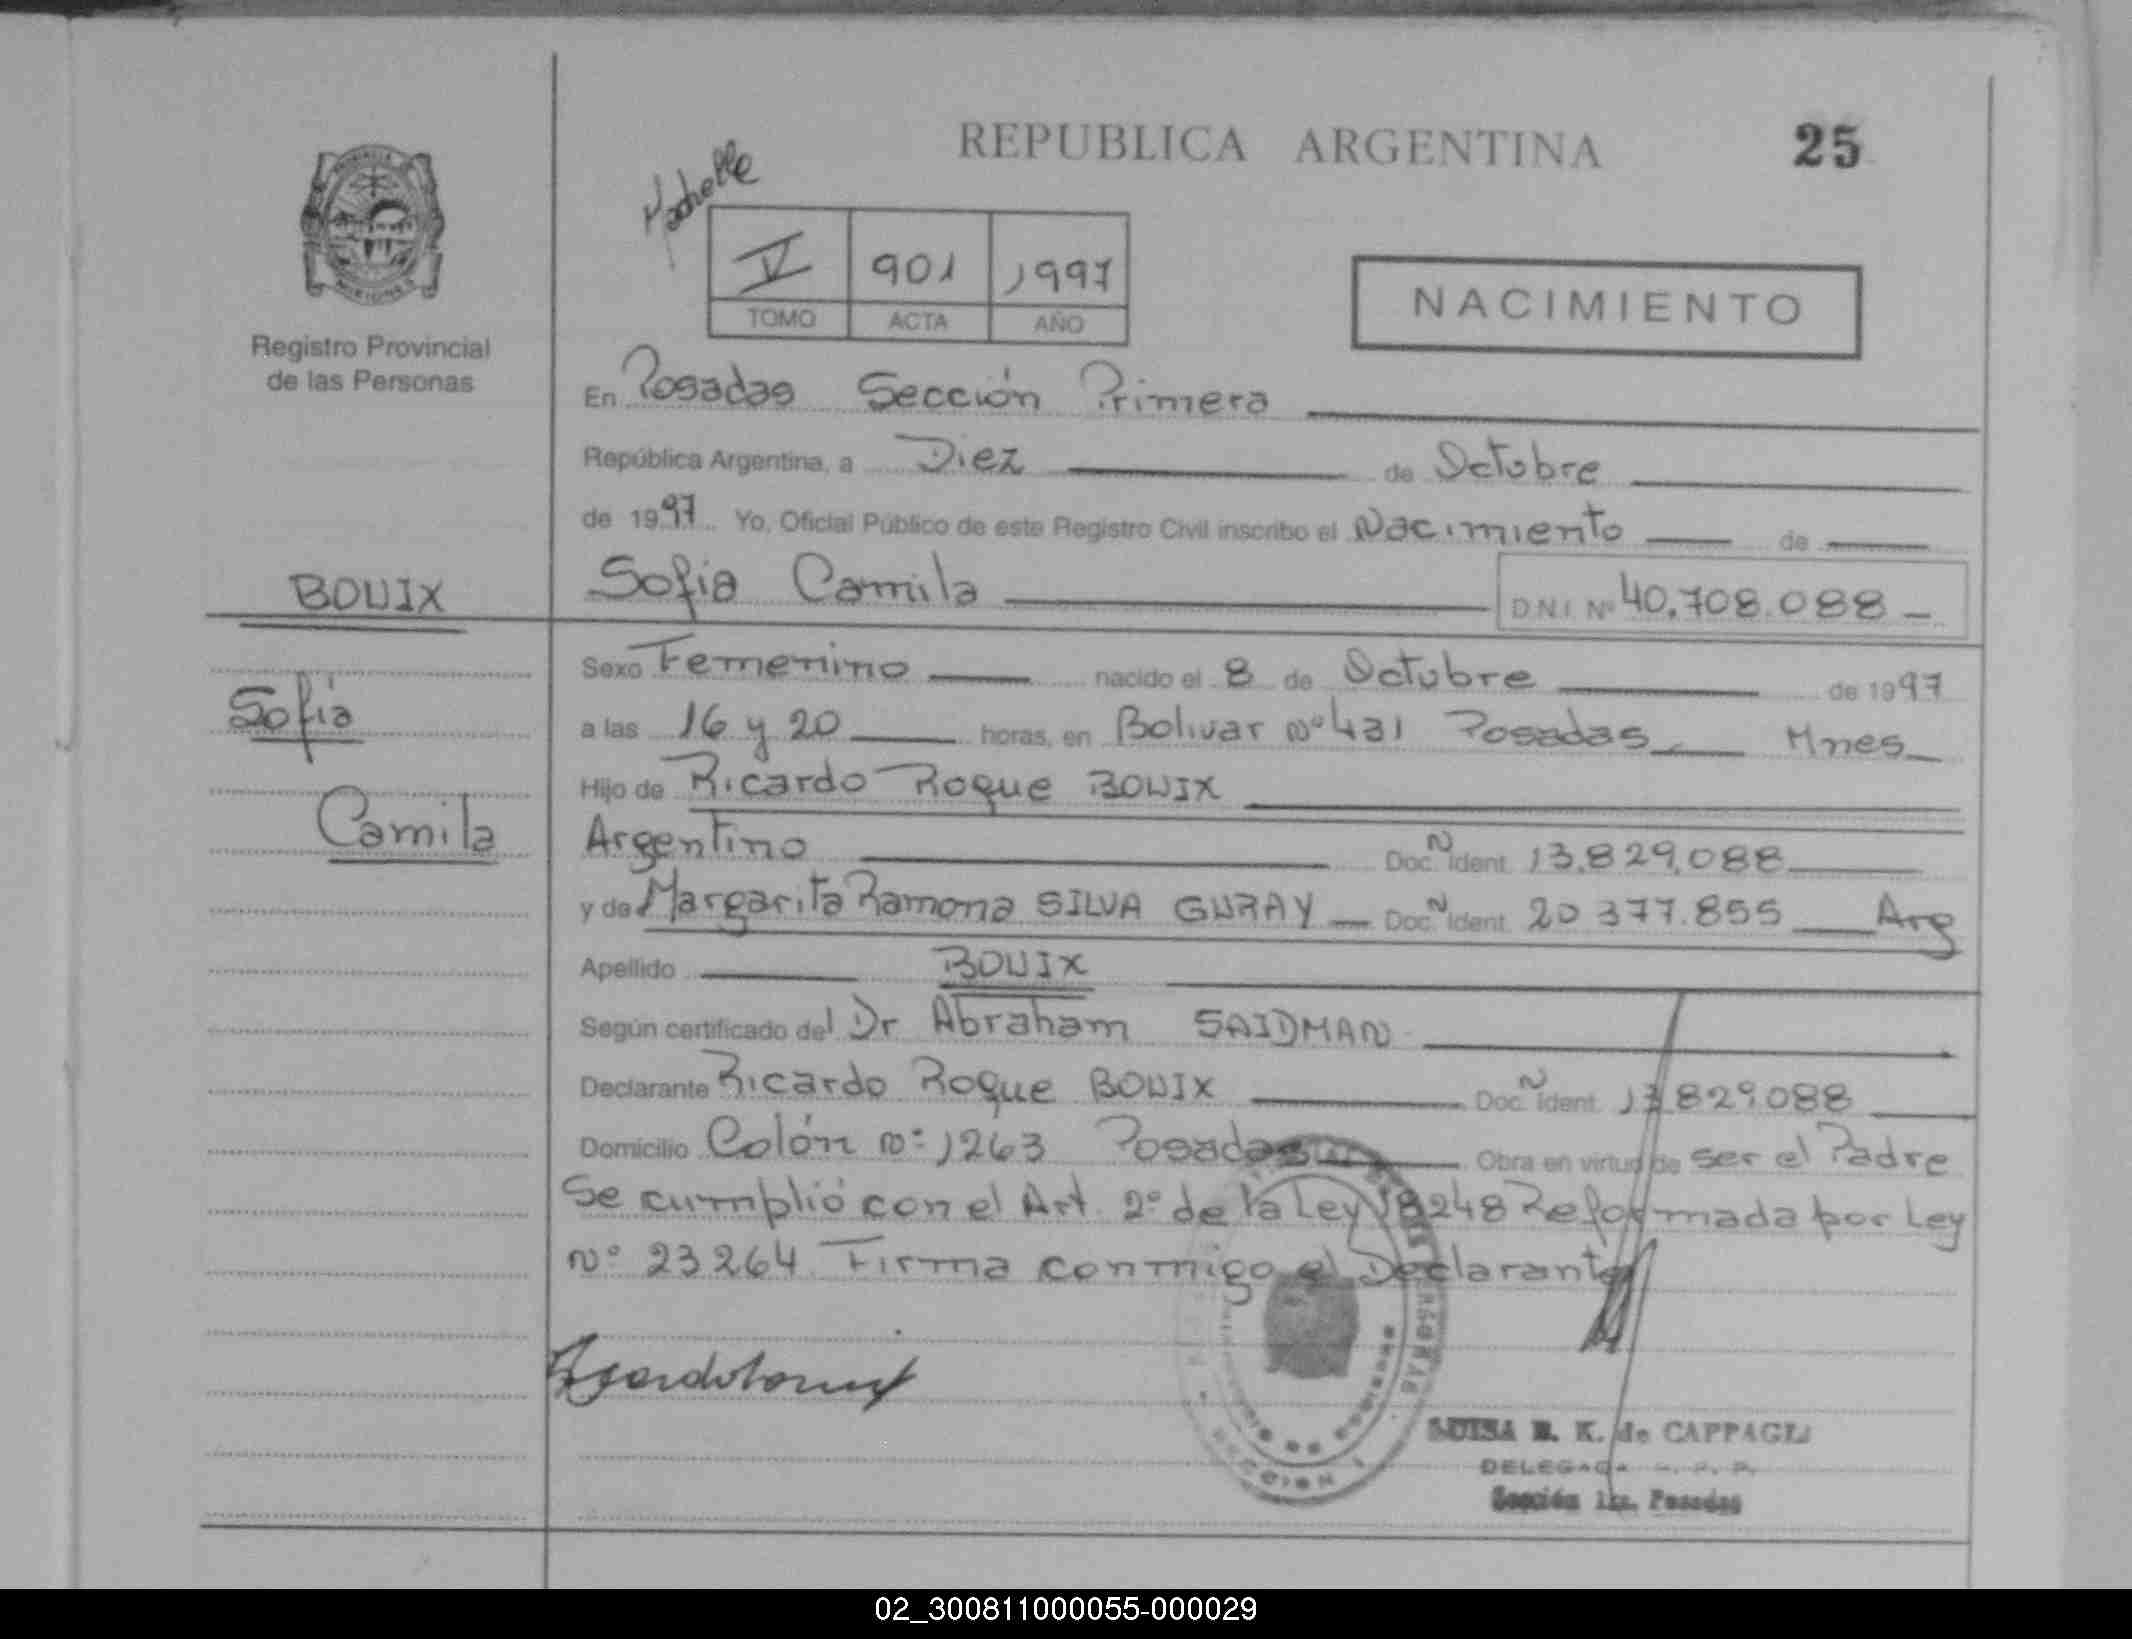 REPUBLICA ARGENTINA
25
V 901 1997
TOMO ACTA AÑO
NACIMIENTO
Registro Provincial
de las Personas
En Posadas Sección Primera
República Argentina, a Diez de Octubre
de 1997 Yo, Oficial Público de este Registro Civil inscribo el Nacimiento de
BOUIX
Sofia Camila D.N.I. Nº 40.708.088
Sexo Femenino nacido el 8 de Octubre de 1997
Sofia
a las 16 y 20 horas, en Bolivar nº 431 Posadas Mnes
Hijo de Ricardo Roque BOUIX
Camila
Argentino Doc. N Ident. 13.829.088
y de Margarita Ramona SILVA GURAY Doc. N Ident. 20 377.855 Arg
Apellido BOUIX
Según certificado del Dr Abraham SAIDMAN
Declarante Ricardo Roque BOUIX Doc. N Ident. 13829.088
Domicilio Colón nº 1263 Posadas Obra en virtud de ser el Padre
Se cumplió con el Art. 2º de la Ley 18248 Reformada por Ley
nº 23264 Firma conmigo el Declarante
LUISA B. K. de CAPPAGLI
Sección 1ra. Posadas
02_300811000055-000029